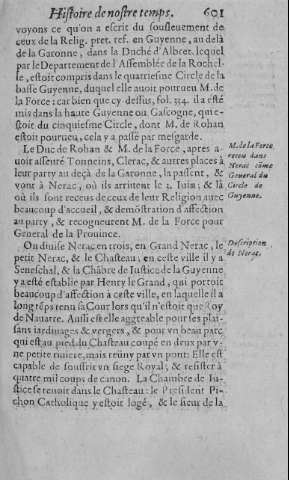 Histoire de nostre temps. 601
voyons ce qu'on a escrit du sousleuement de
ceux de la Relig. pret. ref. en Guyenne, au delà
de la Garonne, dans la Duché d'Albret, lequel
par le Departement de l'Assemblée de la Rochel-
le, estoit compris dans le quatriesme Circle de la
basse Guyenne, duquel elle auoit pourueu M. de
la Force: car bien que cy dessus, fol. 334. il a esté
mis dans la haute Guyenne ou Gascogne, qui e-
stoit du cinquiesme Circle, dont M. de Rohan
estoit pourueu, cela y a passé par mesgarde.
Le Duc de Rohan & M. de la Force, apres a-
uoir asseuré Tonneins, Clerac, & autres places à
leur party au deçà de la Garonne, la passent, &
vont à Nerac, où ils arriuent le 2. Iuin; & là
où ils sont receus de ceux de leur Religion auec
beaucoup d'accueil, & demõstration d'affection
au party, & recogneurent M. de la Force pour
General de la Prouince.
M. de la Force
receu dans
Nerac cõme
General du
Circle de
Guyenne.
On diuise Nerac en trois, en Grand Nerac, le
petit Nerac, & le Chasteau; en ceste ville il y a
Seneschal, & la Chãbre de Iustice de la Guyenne
y a esté establie par Henry le Grand, qui portoit
beaucoup d'affection à ceste ville, en laquelle il a
long tẽps tenu sa Cour lors qu'il n'estoit que Roy
de Nauarre. Aussi est elle aggreable pour ses plai-
sans iardinages & vergers, & pour vn beau parc
qui est au pied du Chasteau coupé en deux par v-
ne petite riuiere, mais reüny par vn pont: Elle est
capable de souffrir vn siege Royal, & resister à
quatre mil coups de canon. La Chambre de Iu-
stice se tenoit dans le Chasteau: le President Pi-
chon Catholique y estoit logé, & le sieur de la
Description
de Nerac.